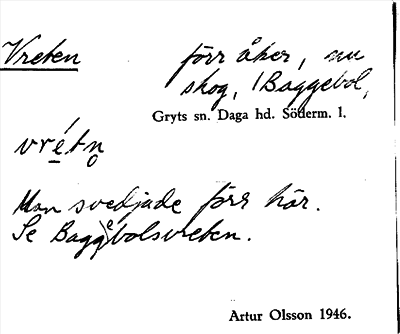 Vreten
förr åker, nu
skog, / Baggebol,
Gryts sn. Daga hd. Söderm. l.
vrétn̥
Man svedjade förr här.
Se Baggebolsvreten.
Artur Olsson 1946.